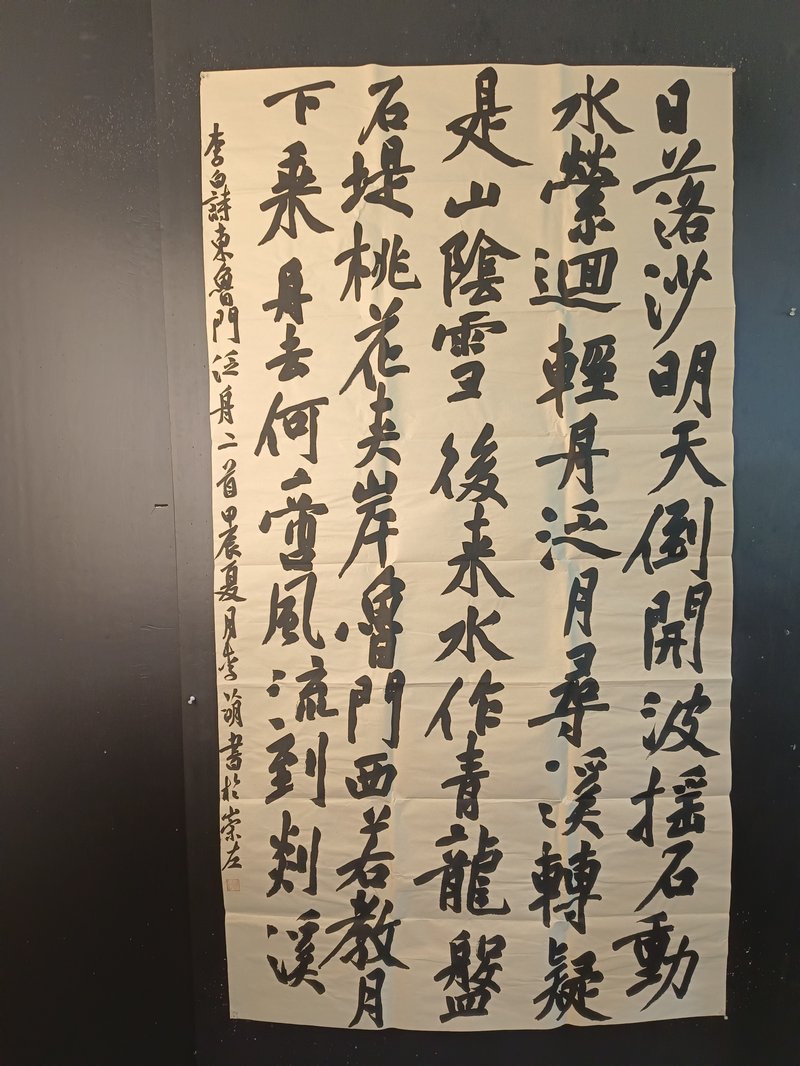 日落沙明天倒開波揺石動
水縈迴輕舟泛月尋溪轉疑
是山陰雪後来水作青龍盤
石堤桃花夹岸魯門西若教月
下乘舟去何啻風流到剡溪
李白詩東魯門泛舟二首甲辰夏月李萌書於崇左